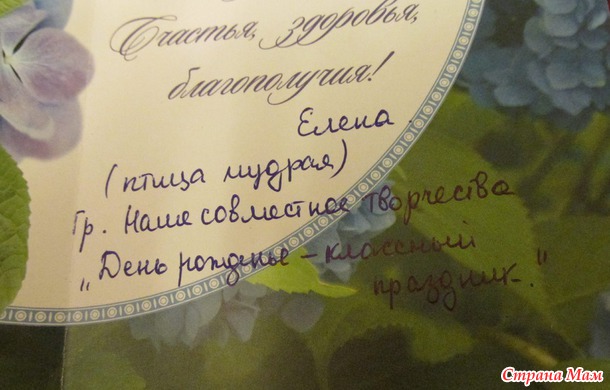 Счастья, здоровья,
благополучия!
Елена.
(птица мудрая)
Гр. Наше совместное творчество
„День рожденье – классный
праздник."
Страна Мам